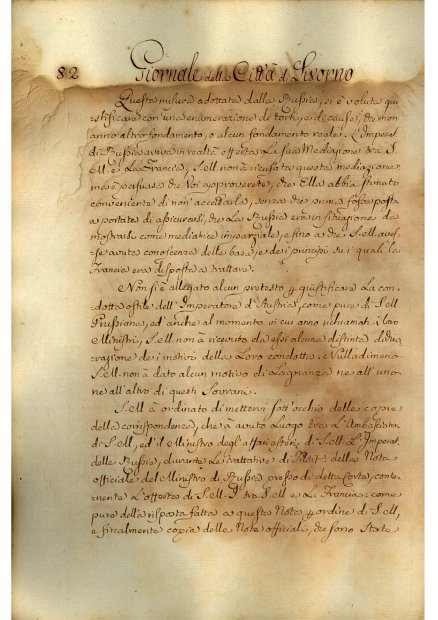 82 Giornale della Città di Livorno
Questa misura adottata dalla Russia, si è voluta qui
stificare con una enumerazione di torti, e de cause, che non
anno altro fondamento, o alcun fondamento reale. L'Imperat.
di Russia aveva in realtà offerta La sua Mediazione tra S.
M. e La Francia, S.M. non à ricusata questa mediazione;
ma è persuasa che Voi approverete, che Ella abbia stimato
conveniente di non accettarla, senza che prima fosse posta
a portata di assicurarsi, che La Russia era in situazione da
mostrarsi come mediatrice imparziale, e fino a che S.M. aves-
se avuto conoscenza delle basi, e dei principi su i quali la
Francia era disposta a trattare.
Non si è allegato alcun pretesto p giustificare La con-
dotta ostile dell'Imperatore d'Austria, come pure di S.M.
Prussiana, ed anche al momento in cui anno richiamati i loro
Ministri, S.M. non à ricevuto da essi alcuna distinta dichia
razione dei motivi della Loro condotta. Nulladimeno
S.M. non à dato alcun motivo di Lagnanza ne all'uno
ne all'altro di questi Sovrani.
S.M. à ordinato di mettervi sott'occhio delle copie
della corrispondenza, che à avuto Luogo tra L'Ambasciator.
di S.M, ed il Ministro degli affari esteri, di S.M. L'Imperat.
delle Russie, durante Le trattative di Tilsit: della Nota
officiale del Ministro di Russia presso di detta Corte, conte-
nente L'offerta di S.M. I. tra S.M. e La Francia: come
pure della risposta fatta a questa Nota p ordine di S.M,
e finalmente copia delle Note officiali, che sono State